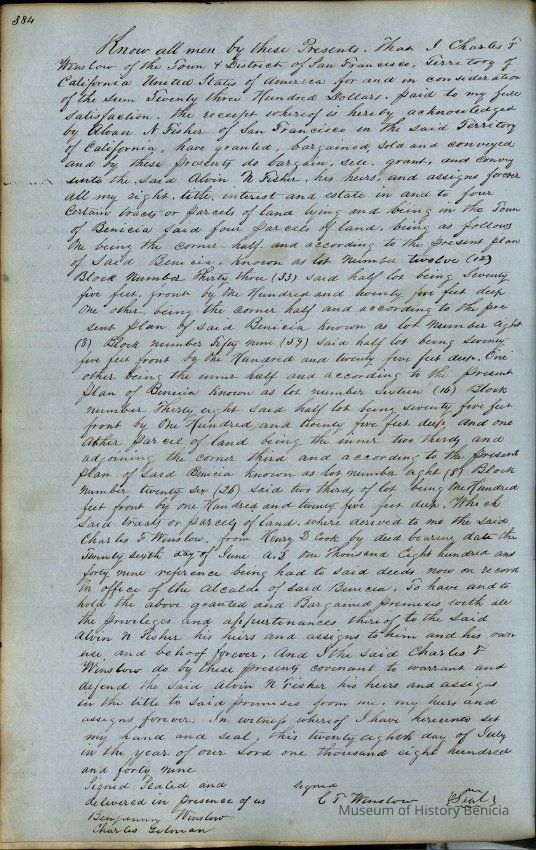 384
Know all men by these Presents. That I Charles F
Winslow of the Town & District of San Francisco, Territory of
California United States of America for and in consideration
of the sum Twenty three Hundred Dollars, paid to my full
satisfaction, the receipt whereof is hereby acknowledged
by Alvan N Fisher of San Francisco in the said Territory
of California, have granted, bargained, sold and conveyed
and by these presents do bargain, sell, grant, and convey
unto the said Alvin N Fisher, his heirs and assigns forever
all my right, title, interest and estate in and to four
Certain tracts or parcels of land lying and being in the Town
of Benicia said four parcels of land, being as follows
One being the corner half and according to the present plan
of said Benicia, known as lot number twelve (12)
Block Number Thirty three (33) said half lot being Seventy
five feet, front by One Hundred and twenty five feet deep
One other, being the corner half and according to the pre
sent plan of said Benicia known as lot number Eight
(8) Block number Fifty nine (59) said half lot being seventy
five feet front by One Hundred and twenty five feet deep. One
other being the inner half and according to the present
plan of Benicia known as lot number Sixteen (16) Block
number Thirty eight said half lot being seventy five feet
front by One Hundred and twenty five feet deep, and one
other Parcel of land being the inner two thirds and
adjoining the corner third and according to the present
plan of said Benicia known as lot number eight (8) Block
number twenty six (26) said two thirds of lot being One Hundred
feet front by one Hundred and twenty five feet deep. Which
said tracts or parcels of land, where derived to me the said
Charles F Winslow, from Henry D Cook by deed bearing date the
Twenty sixth day of June A.D One thousand Eight hundred and
forty nine reference being had to said deeds now on record
in office of the Alcalde of said Benicia. To have and to
hold the above granted and Bargained premises with all
the privileges and appurtinances thereof to the said
Alvin N Fisher his heirs and assigns to him and his own
use and behoof forever, And I the said Charles F
Winslow do by these presents covenant to warrant and
defend the said Alvin N Fisher his heirs and assigns
in the title to said premises from me, my heirs and
assigns forever. In witness whereof I have hereunto set
my hand and seal, this twenty eighth day of July
in the year of our Lord one thousand eight hundred
and forty nine
Signed Sealed and signed
delivered in presence of us C F Winslow Seal
Benjamin Winslow
Charles Gilman
Museum of History Benicia